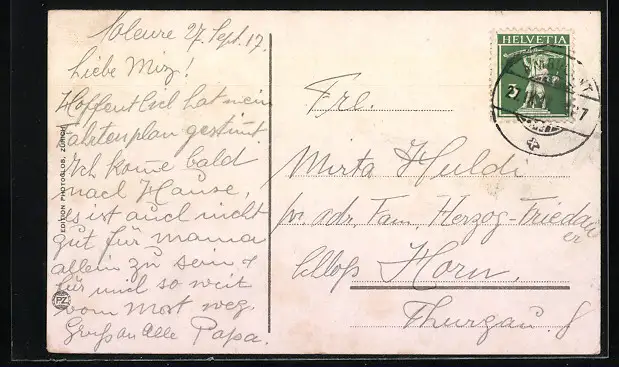 Soleure 27. Sept. 17.
Liebe Miz!
Hoffentlich hat mein
Fahrtenplan gestimt.
Ich kome bald
nach Hause,
es ist auch nicht
gut für mama
allein zu sein &
für mich so weit
vom Most weg.
Gruss an Alle Papa.
EDITION PHOTOGLOB, ZÜRICH
PZ
HELVETIA
27
Frl.
Mirta Huldi
pr. adr. Fam. Herzog-Friedau
er
Schloss Horn,
Thurgau.